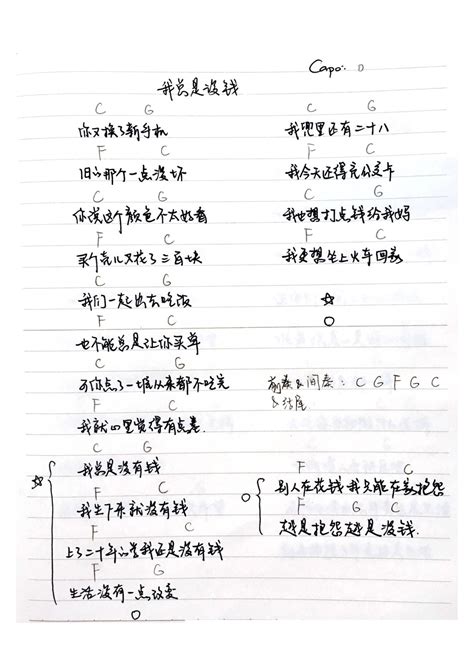 Capo: 0
我总是没钱
C G
你又换了新手机
F C
旧的那个一点没坏
C G
你说这个颜色不太好看
F C
买个壳儿又花了三百块
C G
我们一起出去吃饭
F C
也不能总是让你买单
C G
可你点了一堆从来都不吃完
F C
我就心里觉得有点卷
C G
☆ 我总是没有钱
F C
我生下来就没有钱
F C
上了二十年的学我还是没有钱
F G
生活没有一点改变
○
C G
我兜里还有二十八
F C
我今天还得充公交卡
C G
我也想打点钱给我妈
F C
我更想坐上火车回家
☆
○
前奏&间奏: C G F G C
&结尾
F C
○ 别人在花钱我只能在家抱怨
F G C
越是抱怨越是没钱